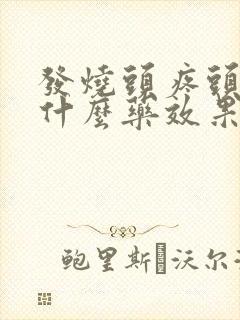 發燒頭疼頭
什麼藥效果
鲍里斯·沃尔